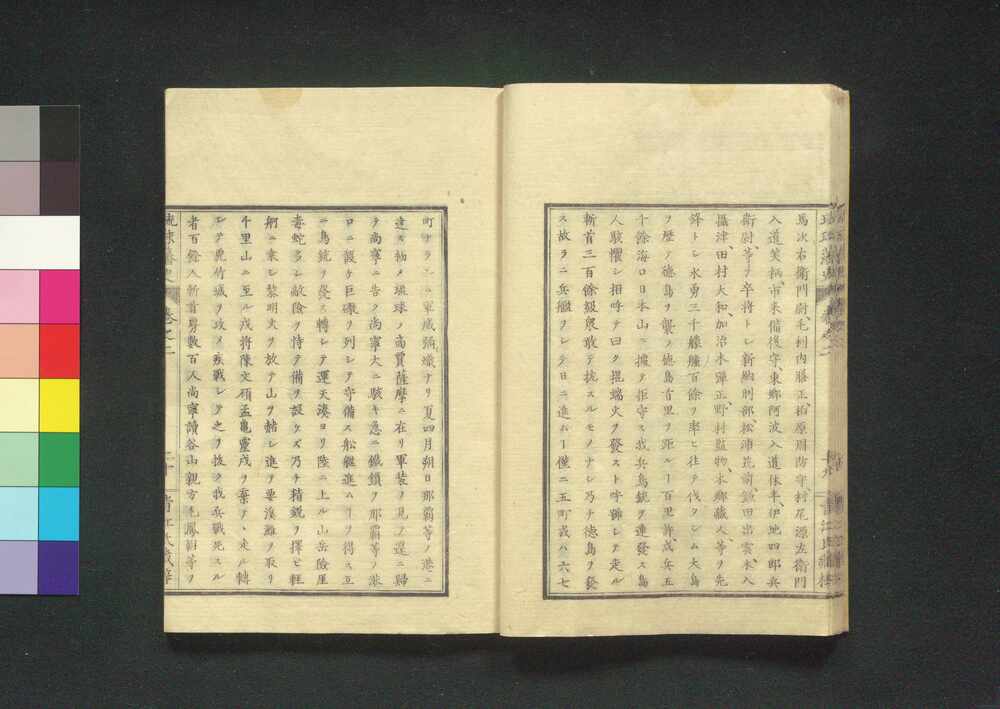 馬次右衛門尉、毛利内膳正、栢原周防守、村尾源左衛門
入道笑栖、市來備後守、東郷阿波入道休半、伊地四郎兵
衛尉等ヲ卒將トシ新納刑部松浦筑前、鎌田出雲、本入
攝津、田村大和、加治木彈正、野村監物、本郷藏人等ヲ先
鋒トシ水勇三十艘雜百餘ヲ率ヒ往テ伐タシム大島
ヲ歴テ德島ヲ襲フ德島首里ヲ距ル一百里許、戍兵五
千餘海口日本山ニ據テ拒守ス我兵鳥銃ヲ連發ス島
人駭懼シ相呼テ曰ク棍端火ヲ發スト呼號シテ走ル
斬首三百餘級衆敢テ抗スルモノナシ乃チ德島ヲ發
ス故ラニ兵艦ヲシテ日ニ進ム一僅ニ五町或ハ六七
町ナラシム軍威張熾ナリ夏四月朔日那覇等ノ港ニ
達ス初メ琉球ノ商賈薩摩ニ在リ軍裝ヲ見テ還ニ歸
テ尚寧ニ告ク尚寧大ニ駭キ急ニ鐵鎖ヲ那覇等ノ港
口ニ設ケ巨礮ヲ列シテ守備ス船艦進ムヿヲ得ス互
ニ鳥銃ヲ發ス轉シテ運天湊ヨリ陸ニ上ル山岳險崖
毒蛇多シ敵險ヲ恃テ備ヲ設ケズ乃チ精鋭ヲ擇ヒ輕
舸ニ乘シ黎明火ヲ放テ山ヲ赭シ進テ要渓灘ヲ取リ
千里山ニ至ル戍將陳文碩孟龜靈戍ヲ棄テ、走ル轉
シテ虎竹城ヲ攻メ疾戰シテ之ヲ拔ク我兵戰死スル
者百餘人斬首虜數百人尚寧讀谷山親方毛鳳朝等ヲ
琉球藩史 卷之二 二十 青江氏藏梓